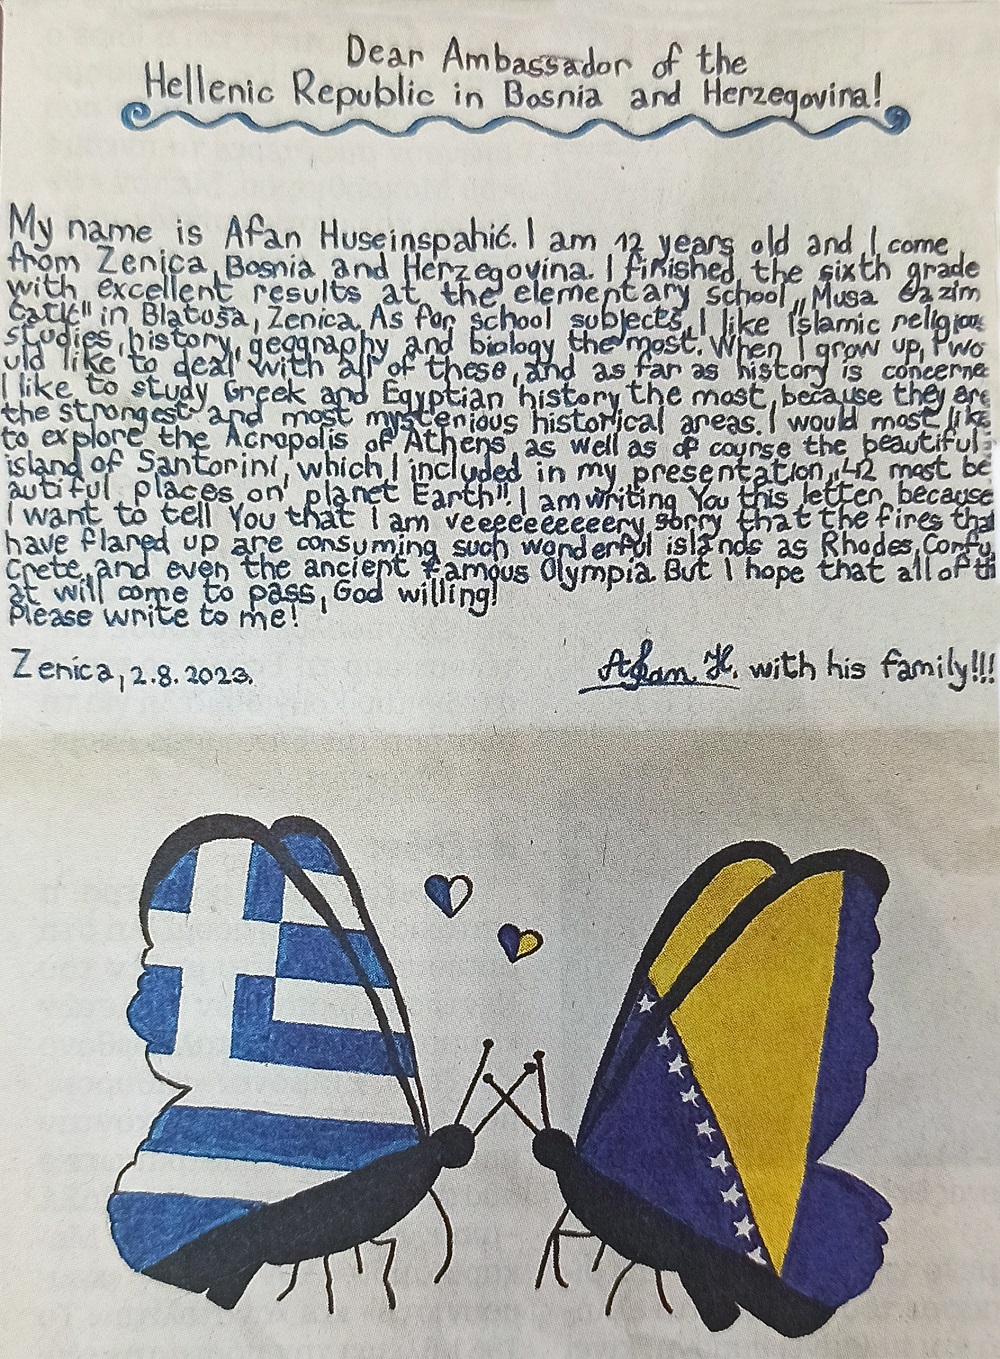 Dear Ambassador of the
Hellenic Republic in Bosnia and Herzegovina!
My name is Afan Huseinspahić. I am 12 years old and I come
from Zenica, Bosnia and Herzegovina. I finished the sixth grade
with excellent results at the elementary school „Musa Ćazim
Ćatić" in Blatuša, Zenica. As for school subjects, I like Islamic religious
studies, history, geography and biology the most. When I grow up, I wo
uld like to deal with all of these, and as far as history is concerne
I like to study Greek and Egyptian history the most, because they are
the strongest and most mysterious historical areas. I would most like
to explore the Acropolis of Athens as well as of course the beautiful
island of Santorini, which I included in my presentation „42 most be
autiful places on planet Earth". I am writing You this letter, because
I want to tell You that I am veeeeeeeeeery sorry that the fires that
have flared up are consuming such wonderful islands as Rhodes, Corfu,
Crete, and even the ancient famous Olympia. But I hope that all of th
at will come to pass, God willing!
Please write to me!
Zenica, 2.8.2023.
Afan H. with his family!!!